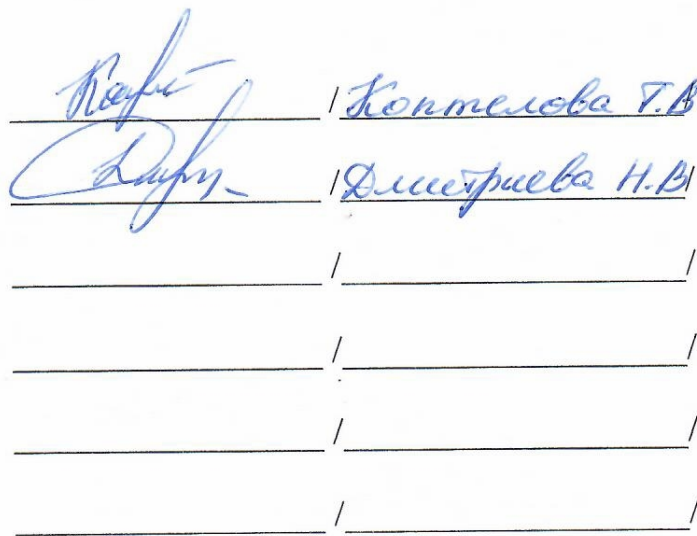 / Коптелова Т.В
/ Дмитриева Н.В /
/ /
/ /
/ /
/ /